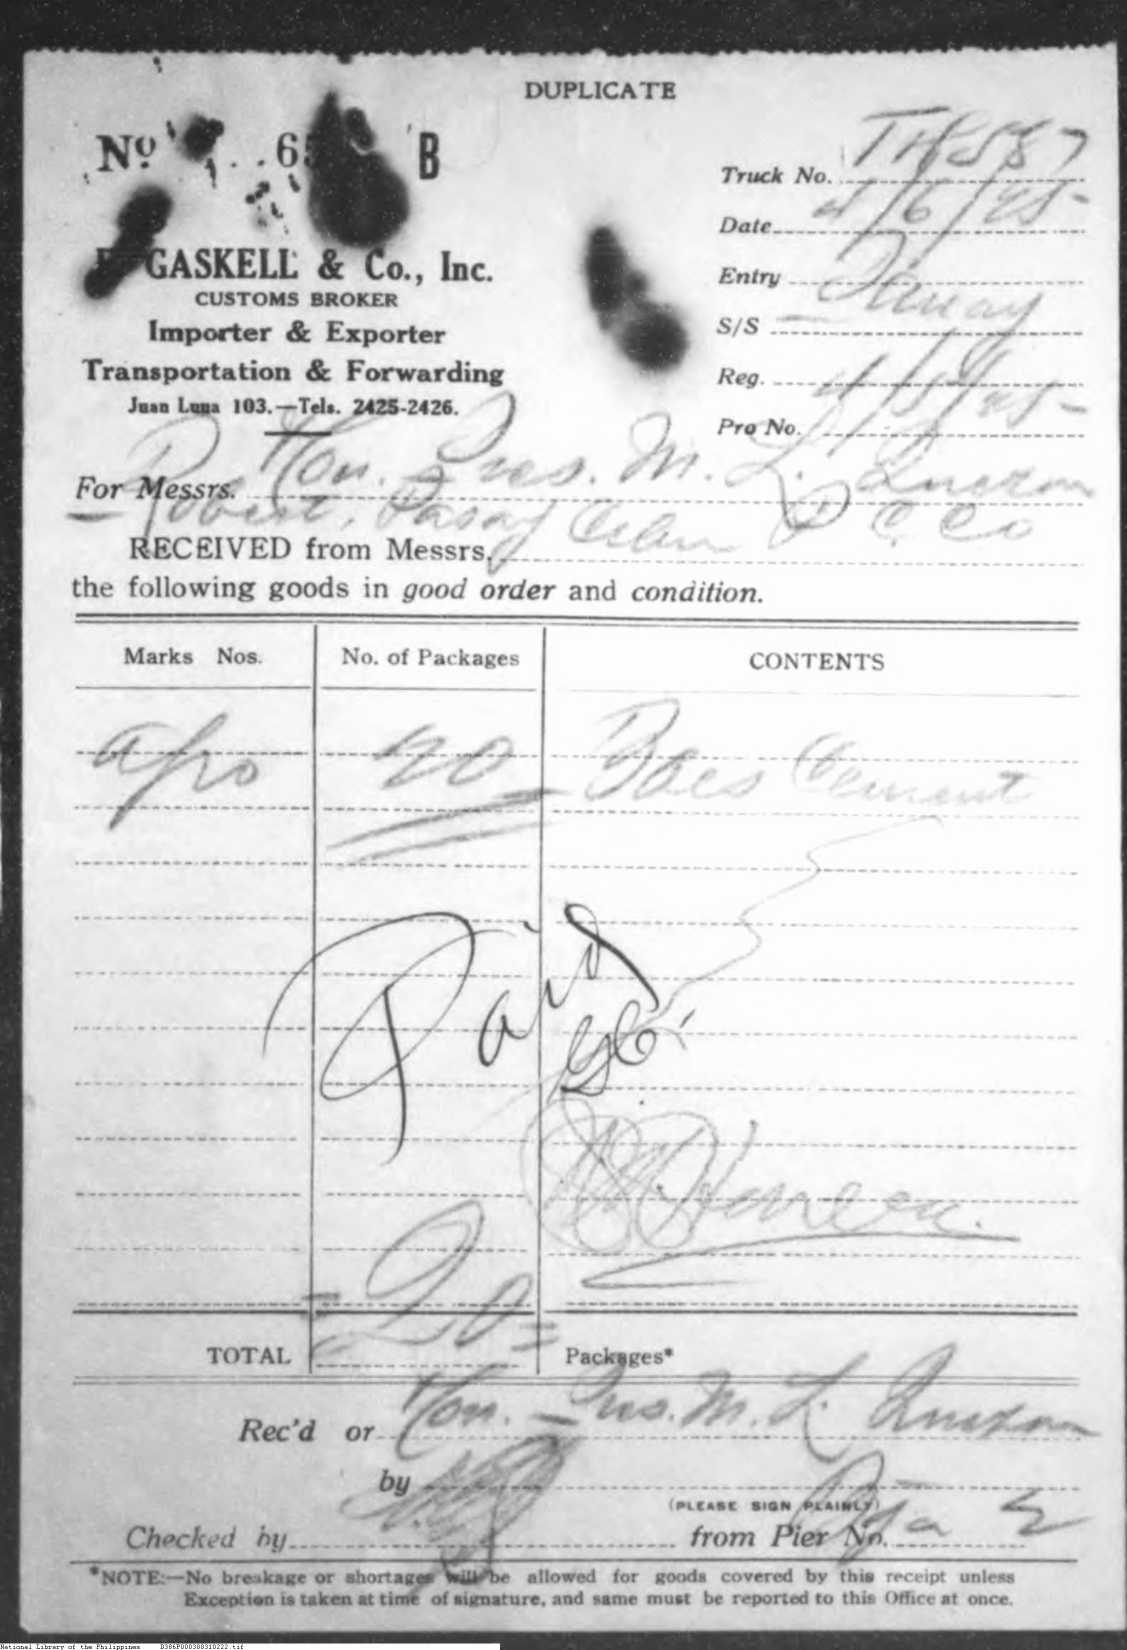 DUPLICATE
No 6 B
Truck No. TH587
GASKELL & Co., Inc.
CUSTOMS BROKER
Importer & Exporter
Transportation & Forwarding
Juan Luna 103.—Tels. 2425-2426.
Date
Entry
S/S
Reg.
Pro No.
For Messrs. Hon. Pres. M. L. Quezon
Robert, Pasay
RECEIVED from Messrs. Cebu P. C. Co
the following goods in good order and condition.
Marks Nos. No. of Packages CONTENTS
apo 20 Bbls Cement
Paid
Herrera
20
TOTAL Packages*
Rec'd or Hon. Pres. M. L. Quezon
by
(PLEASE SIGN PLAINLY)
Checked by from Pier No.
*NOTE:—No breakage or shortages will be allowed for goods covered by this receipt unless
Exception is taken at time of signature, and same must be reported to this Office at once.
National Library of the Philippines